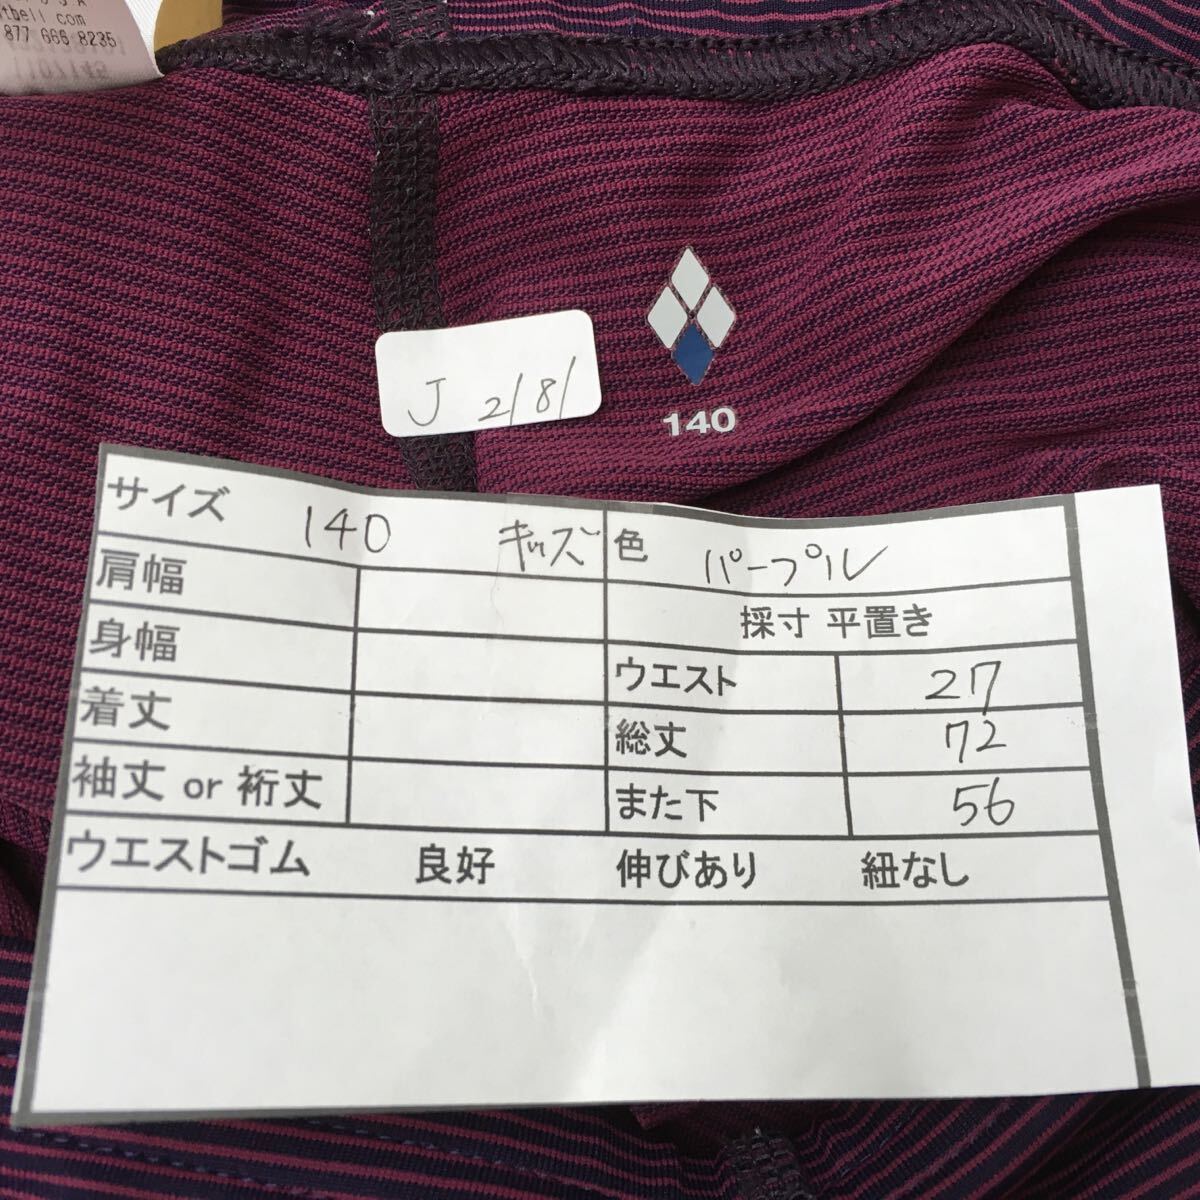 tbell com
877 666 8235
J 2181
140
サイズ 140 キッズ 色 パープル
肩幅 採寸 平置き
身幅 ウエスト 27
着丈 総丈 72
袖丈 or 裄丈 また下 56
ウエストゴム 良好 伸びあり 紐なし